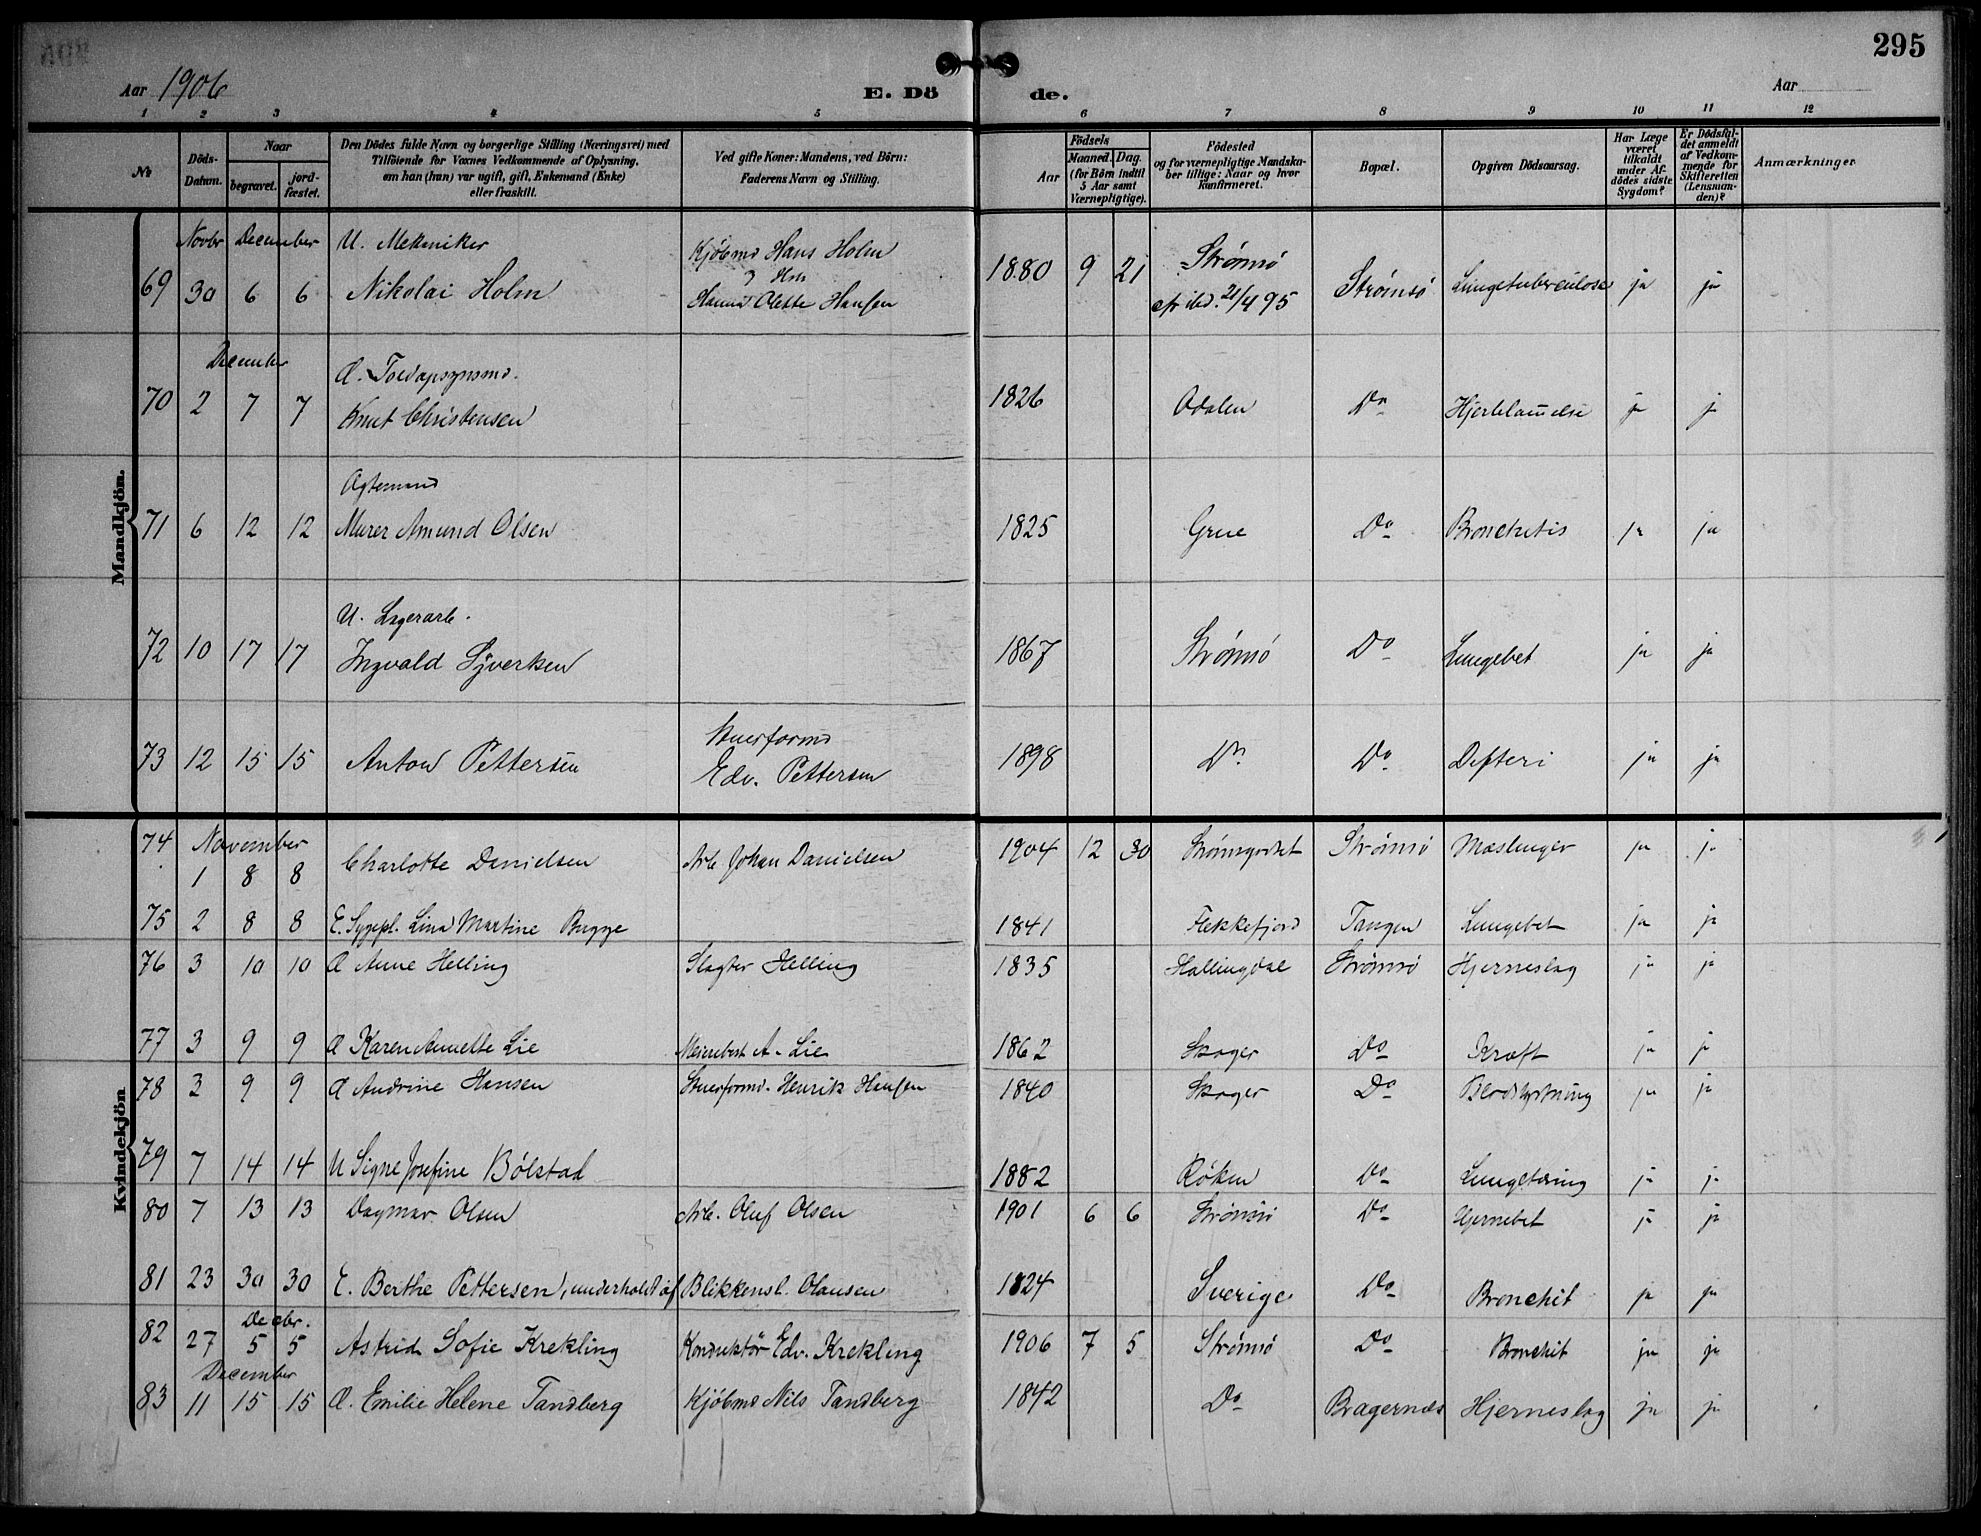 295
Aar 1906
E. Dö
de.
Aar
1 2 3 4 5 6 7 8 9 10 11 12
№
Döds-Datum.
Naar
begravet.
jord-fæstet.
Den Dödes fulde Navn og borgerlige Stilling (Næringsvei) med
Tilföiende for Voxnes Vedkommende af Oplysning,
om han (hun) var ugift, gift, Enkemand (Enke)
eller fraskilt.
Ved gifte Koner: Mandens, ved Börn:
Faderens Navn og Stilling.
Aar
Födsels
Maaned. Dag.
(for Börn indtil
5 Aar samt
Værnepligtige).
Födested
og for værnepligtige Mandska-
ber tillige: Naar og hvor
Konfirmeret.
Bopæl.
Opgiven Dödsaarsag.
Har Læge
været
tilkaldt
under Af-
dödes sidste
Sygdom?
Er Dödsfal-
det anmeldt
af Vedkom-
mende for
Skifteretten
(Lensman-
den)?
Anmærkninger
Mandkjön.
Novbr December U. Mekaniker Kjöbmd Hans Holm Strømsø
69 30 6 6 Nikolai Holm Olette Hansen 1880 9 21 21/4 95 Strømsø Lungetuberculose ja ja
December
Toldopsynsmd.
70 2 7 7 Knut Christensen 1826 Odalen Do Hjertelammelse ja ja
Ægtemand
71 6 12 12 Murer Amund Olsen 1825 Grue Do Bronchitis ja ja
U. Lagerarb.
72 10 17 17 Ingvald Syvertsen 1867 Strømsø Do Lungebet ja ja
Stuerformd
73 12 15 15 Anton Pettersen Edv. Pettersen 1898 Do Do Difteri ja ja
Kvindekjön
November
74 1 8 8 Charlotte Danielsen Arb. Johan Danielsen 1904 12 30 Strømsgodset Strømsø Mæslinger ja ja
75 2 8 8 E. Sygepl. Lina Martine Bugge 1841 Flekkefjord Tangen Lungebet ja ja
76 3 10 10 Æ Anne Helling Slagter Helling 1835 Hallingdal Strømsø Hjerneslag ja ja
77 3 9 9 Æ Karen Annette Lie Meieribest A. Lie 1862 Skoger Do Kræft ja ja
78 3 9 9 Æ Andrine Hansen Stuerformd. Henrik Hansen 1840 Skoger Do Blodstyrtning ja ja
79 7 14 14 U Signe Josefine Bölstad 1882 Röken Do Lungetæring ja ja
80 7 13 13 Dagmar Olsen Arb. Oluf Olsen 1901 6 6 Strømsø Do Hjernebet ja ja
81 23 30 30 E. Berthe Pettersen, underholdt af Blikkensl. Olausen 1824 Sverige Do Bronchit ja ja
Decbr.
82 27 5 5 Astrid Sofie Krekling Konduktör Edv. Krekling 1906 7 5 Strømsø Do Bronchit ja ja
December
83 11 15 15 Æ. Emilie Helene Tandberg Kjöbmd Nils Tandberg 1842 Do Bragernæs Hjerneslag ja ja